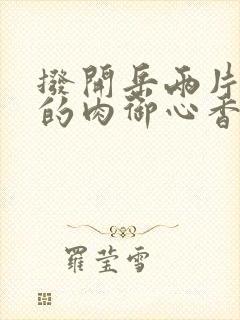 撥開岳兩片
的肉御心香
羅莹雪